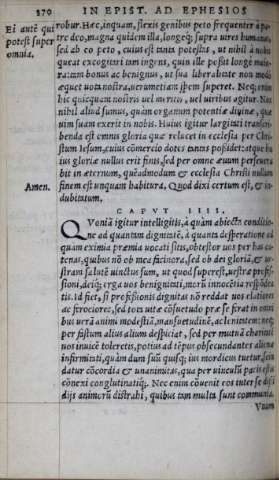 370 IN EPIST. AD EPHESIOS
Ei autē qui
potest super
omnia.
robur. Hæc, inquam, flexis genibus peto frequenter à pa=
tre deo, magna quidem illa, longeq; supra uires humanas,
sed ab eo peto, cuius est tanta potestas, ut nihil à nobis
queat excogitari tam ingens, quin ille possit longè maio=
ra: tam bonus ac benignus, ut sua liberalitate non modo
æquet uota nostra, uerumetiam ipsem superet. Neq; enim
hic quicquam nostris uel meritis, uel uiribus agitur. Nos
nihil aliud sumus, quàm organum potentiæ diuinæ, quæ
uim suam exerit in nobis. Huius igitur largitati transcri=
benda est omnis gloria quæ relucet in ecclesia per Chri=
stum Iesum, cuius cōmercio dotes tantas possidet: atque hu
ius gloriæ nullus erit finis, sed per omne æuum perseuera
bit in æternum, quēadmodum & ecclesia Christi nullum
Amen.
finem est unquam habitura. Quod dixi certum est, & in=
dubitatum.
CAPVT IIII.
Quoniā igitur intelligitis, à quàm abiecta conditio=
ne ad quantam dignitatē, à quanta desperatione ad
quàm eximia præmia uocati sitis, obtestor uos per has ca=
tenas, quibus nō ob mea facinora, sed ob dei gloriā, & ue=
stram salutē uinctus sum, ut quod superest, uestræ profes=
sioni, deiq; erga uos benignitati, morū innocētia respōdea
tis. Id fiet, si professionis dignitas nō reddat uos elatiores
ac ferociores, sed tota uitæ cōsuetudo præ se ferat in omni
bus uerā animi modestiā, mansuetudinē, ac lenitatem: neq;
per fastum alius alium despiciat, sed per mutuā charitatē
uos inuicē toleretis, potius ad tēpus obsecundantes alienæ
infirmitati, quàm dum suū quisq; ius mordicus tuetur,
datur cōcordia & unanimitas, qua per uinculū pacis estis
cōnexi conglutinatiq;. Nec enim cōuenit eos inter se dissi
dijs animorū distrahi, quibus tam multa sunt communia.
Vnum